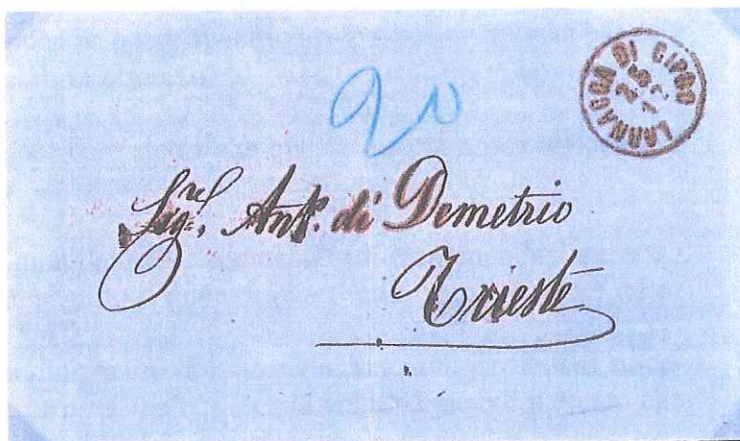 20
LARNACCA DI CIPRO
Sigre. Anto. di Demetrio
Trieste